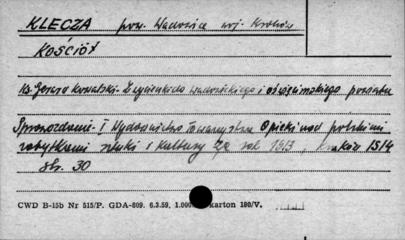 KLECZA pow. Wadowice woj. Kraków
KOŚCIÓŁ
Ks. Gerard Kowalski. Z wycieczki do wadowickiego i oświęcimskiego powiatu
Sprawozdanie i Wydawnictwo Towarzystwa Opieki nad polskimi
zabytkami sztuki i kultury za rok 1913, Kraków 1914
str. 30
CWD B-15b Nr 515/P. GDA-809. 6.3.59. 1.000 karton 180/V.